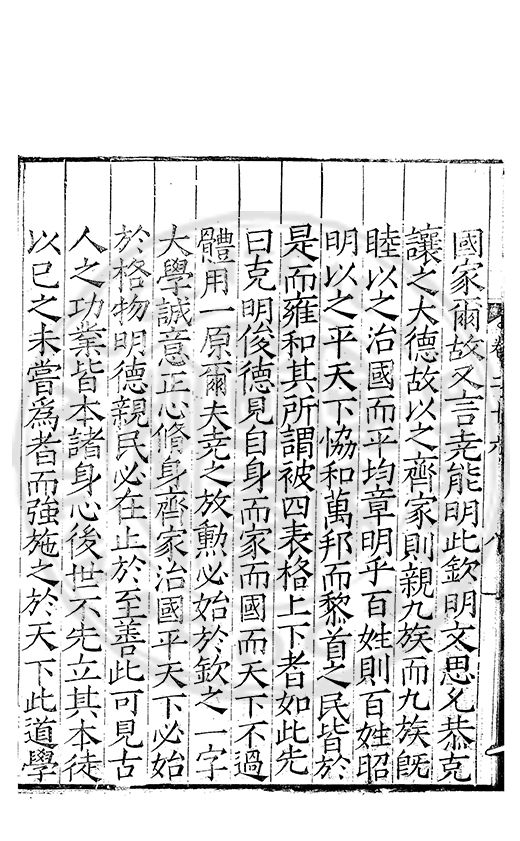 國家爾故又言堯能明此欽明文思允恭克
讓之大德故以之齊家則親九族而九族旣
睦以之治國而平均章明乎百姓則百姓昭
明以之平天下恊和萬邦而黎首之民皆於
是而雍和其所謂被四表格上下者如此先
曰克明俊德見自身而家而國而天下不過
體用一原爾夫堯之放勳必始於欽之一字
大學誠意正心脩身齊家治國平天下必始
於格物明德親民必在止於至善此可見古
人之功業皆本諸身心後世不先立其本徒
以己之未嘗爲者而強施之於天下此道學